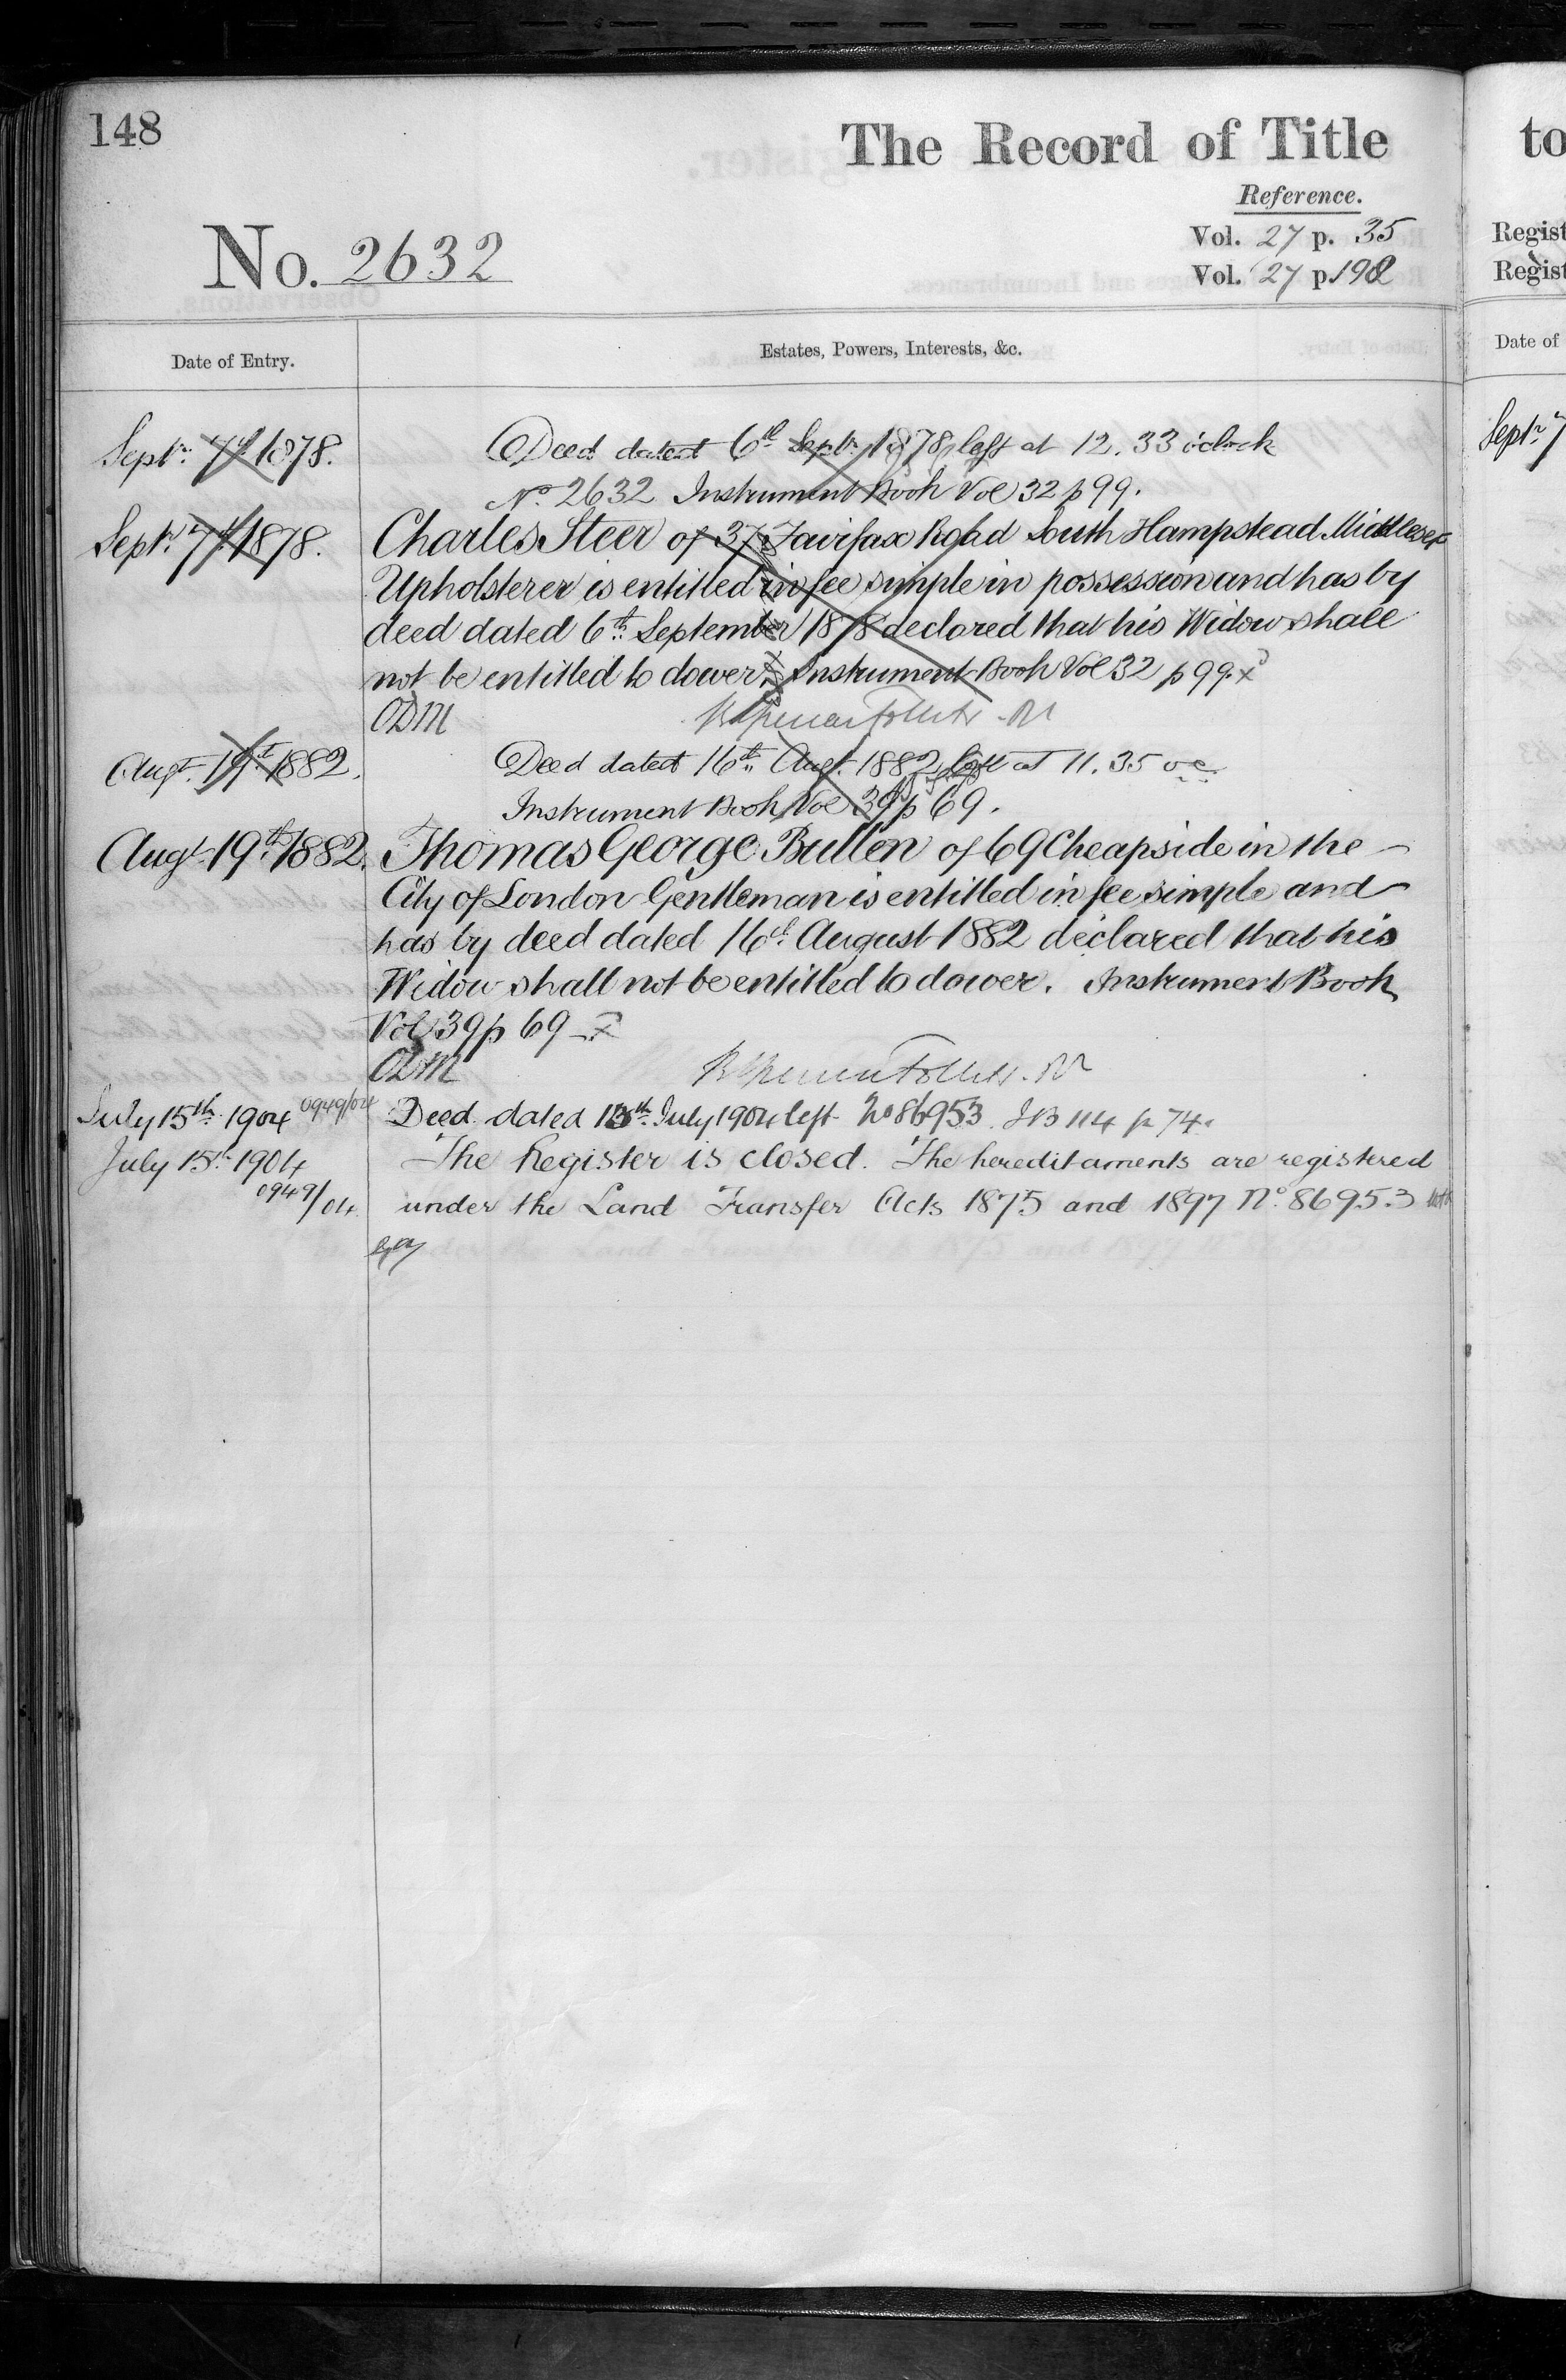 148
The Record of Title
to
Reference.
Vol. 27 p. 35
Vol. 27 p. 192
No. 2632
Regist
Regist
Date of Entry.
Estates, Powers, Interests, &c.
Date of
Septr. 7th 1878.
Deed dated 6th Septr. 1878 left at 12.33 o'clock
No. 2632 Instrument Book Vol 32 p 99.
Septr. 7
Septr. 7th 1878.
Charles Steer of 37 Fairfax Road South Hampstead Middlesex
Upholsterer is entitled in fee simple in possession and has by
deed dated 6th September 1878 declared that his Widow shall
not be entitled to dower. Instrument Book Vol 32 p 99. x
ODM
Augt. 19th 1882.
Deed dated 16th Augt. 1882 left at 11.35 oc.
Instrument Book Vol 39 p 69.
Augt. 19th 1882.
Thomas George Bullen of 69 Cheapside in the
City of London Gentleman is entitled in fee simple and
has by deed dated 16th August 1882 declared that his
Widow shall not be entitled to dower. Instrument Book
Vol 39 p 69 - x
ODM
July 15th 1904 0949/04
Deed dated 13th July 1904 left No 86953. IB 114 p 74.
July 15th 1904
0949/04.
The Register is closed. The hereditaments are registered
under the Land Transfer Acts 1875 and 1897 No. 86953